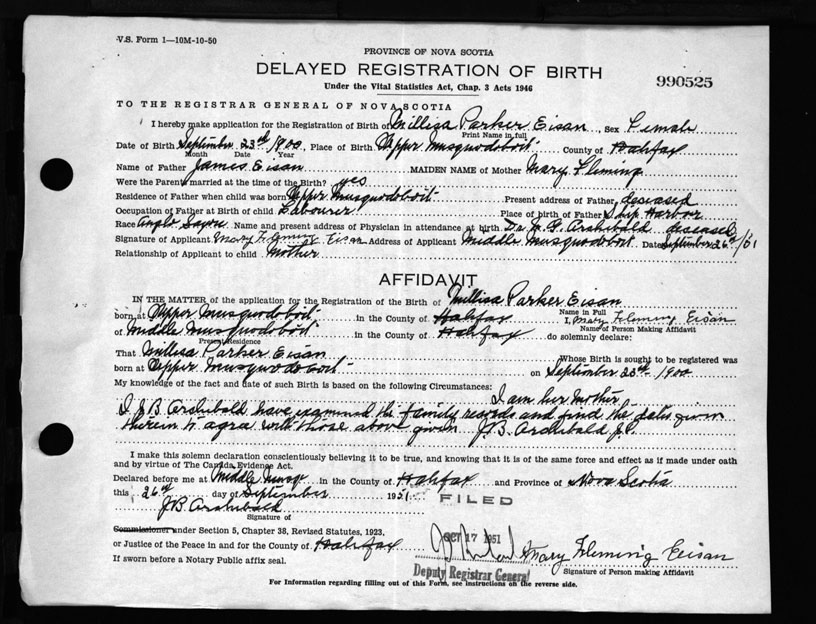 V.S. Form 1—10M-10-50
PROVINCE OF NOVA SCOTIA
DELAYED REGISTRATION OF BIRTH
990525
Under the Vital Statistics Act, Chap. 3 Acts 1946
TO THE REGISTRAR GENERAL OF NOVA SCOTIA
I hereby make application for the Registration of Birth of Millisa Parker Eisan, Sex Female
Print Name in full
Date of Birth September 23rd 1900, Place of Birth Upper Musquodoboit County of Halifax
Month Date Year
Name of Father James Eisan MAIDEN NAME of Mother Mary Fleming
Were the Parents married at the time of the Birth? yes
Residence of Father when child was born Upper Musquodoboit Present address of Father deseased
Occupation of Father at Birth of child Labourer Place of birth of Father Ship Harbor
Race Anglo Saxon Name and present address of Physician in attendance at birth Archibald deseased
Signature of Applicant Mary Fleming Eisan Address of Applicant Middle Musquodoboit Date September 26th/51
Relationship of Applicant to child Mother
AFFIDAVIT
IN THE MATTER of the application for the Registration of the Birth of Millisa Parker Eisan
Name in Full
born at Upper Musquodoboit in the County of Halifax I, Mary Fleming Eisan
Name of Person Making Affidavit
of Middle Musquodoboit in the County of Halifax do solemnly declare:
Present Residence
That Millisa Parker Eisan Whose Birth is sought to be registered was
born at Upper Musquodoboit on September 23rd 1900
My knowledge of the fact and date of such Birth is based on the following Circumstances:
I am her Mother
I J B. Archibald have examined the family records and find the dates given
therein to agree with those above given J.B. Archibald J.P.
I make this solemn declaration conscientiously believing it to be true, and knowing that it is of the same force and effect as if made under oath
and by virtue of The Canada Evidence Act.
Declared before me at Middle Musqo in the County of Halifax and Province of Nova Scotia
this 26th day of September 1951
FILED
J B Archibald
Signature of
Commissioner under Section 5, Chapter 38, Revised Statutes, 1923,
OCT 17 1951
or Justice of the Peace in and for the County of Halifax
Mary Fleming Eisan
Deputy Registrar General
Signature of Person making Affidavit
If sworn before a Notary Public affix seal.
For Information regarding filling out of this Form, see instructions on the reverse side.